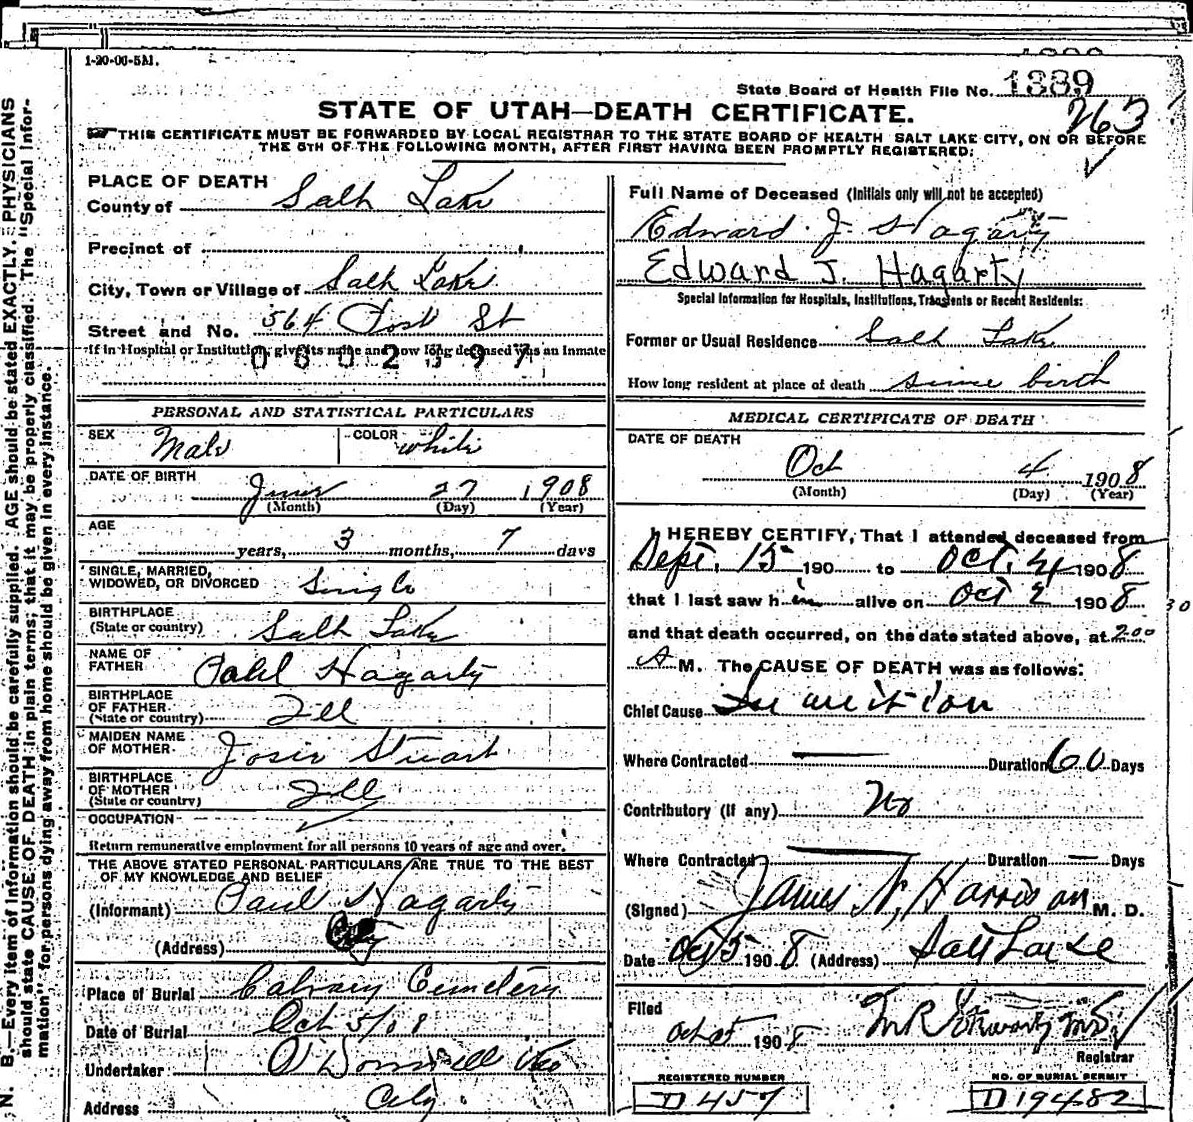 1-20-06-5M.
State Board of Health File No. 1389
263
STATE OF UTAH—DEATH CERTIFICATE.
THIS CERTIFICATE MUST BE FORWARDED BY LOCAL REGISTRAR TO THE STATE BOARD OF HEALTH SALT LAKE CITY, ON OR BEFORE
THE 5TH OF THE FOLLOWING MONTH, AFTER FIRST HAVING BEEN PROMPTLY REGISTERED:
N. B.—Every item of information should be carefully supplied. AGE should be stated EXACTLY. PHYSICIANS
should state CAUSE OF DEATH in plain terms, that it may be properly classified. The "Special Infor-
mation" for persons dying away from home should be given in every instance.
PLACE OF DEATH
County of Salt Lake
Precinct of
City, Town or Village of Salt Lake
Street and No. 564 Post St
If in Hospital or Institution, give its name and how long deceased was an Inmate
PERSONAL AND STATISTICAL PARTICULARS
SEX Male COLOR White
DATE OF BIRTH June 27 1908
(Month) (Day) (Year)
AGE
years, 3 months, 7 days
SINGLE, MARRIED,
WIDOWED, OR DIVORCED Single
BIRTHPLACE
(State or country) Salt Lake
NAME OF
FATHER Paul Hagarty
BIRTHPLACE
OF FATHER
(State or country) Ill
MAIDEN NAME
OF MOTHER Josie Stuart
BIRTHPLACE
OF MOTHER
(State or country) Ill
OCCUPATION
Return remunerative employment for all persons 10 years of age and over.
THE ABOVE STATED PERSONAL PARTICULARS ARE TRUE TO THE BEST
OF MY KNOWLEDGE AND BELIEF
(Informant) Paul Hagarty
(Address) City
Place of Burial Calvary Cemetery
Date of Burial Oct 5/08
Undertaker O'Donnell &co
Address City
Full Name of Deceased (Initials only will not be accepted)
Edward J Hagarty
Edward J. Hagarty
Special Information for Hospitals, Institutions, Transients or Recent Residents:
Former or Usual Residence Salt Lake
How long resident at place of death since birth
MEDICAL CERTIFICATE OF DEATH
DATE OF DEATH
Oct 4 1908
(Month) (Day) (Year)
I HEREBY CERTIFY, That I attended deceased from
Sept. 15 190 to Oct. 4 1908
that I last saw him alive on Oct 2 1908
and that death occurred, on the date stated above, at 2 00
A M. The CAUSE OF DEATH was as follows:
Chief Cause Inanition
Where Contracted — Duration 60 Days
Contributory (if any) No
Where Contracted — Duration — Days
(Signed) James N. Harrison M. D.
Date Oct 5 1908 (Address) Salt Lake
Filed
Oct 5 1908
Registrar
REGISTERED NUMBER
D 457
NO. OF BURIAL PERMIT
D 19482